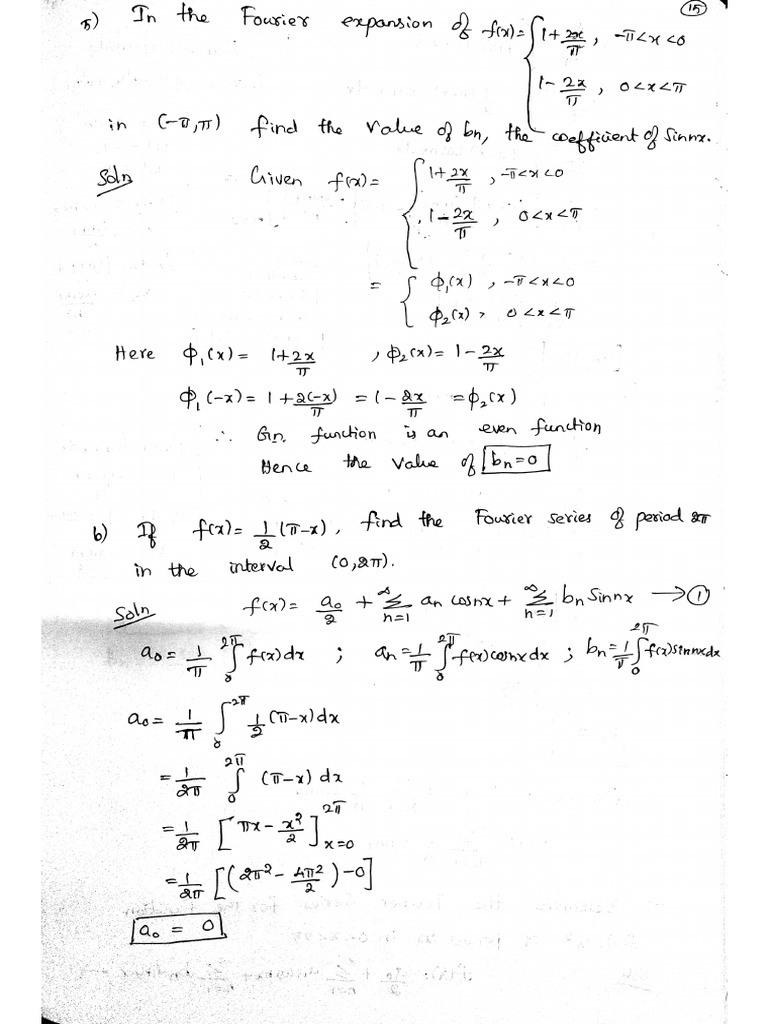 15
5) In the Fourier expansion of f(x) = { 1+2x/π, -π<x<0
1-2x/π, 0<x<π
in (-π,π) find the value of bn, the coefficient of sinnx.
Soln Given f(x) = { 1+2x/π, -π<x<0
1-2x/π, 0<x<π
= { ϕ₁(x), -π<x<0
ϕ₂(x), 0<x<π
Here ϕ₁(x) = 1+2x/π, ϕ₂(x) = 1-2x/π
ϕ₁(-x) = 1+2(-x)/π = 1-2x/π = ϕ₂(x)
∴ Gn. function is an even function
Hence the value of bn=0
6) If f(x) = 1/2 (π-x), find the Fourier series of period 2π
in the interval (0,2π).
Soln f(x) = a₀/2 + ∞Σn=1 an cosnx + ∞Σn=1 bn sinnx → ①
a₀ = 1/π ∫₀^2π f(x)dx ; an = 1/π ∫₀^2π f(x)cosnxdx ; bn = 1/π ∫₀^2π f(x)sinnxdx
a₀ = 1/π ∫₀^2π 1/2 (π-x)dx
= 1/2π ∫₀^2π (π-x) dx
= 1/2π [πx - x²/2]^2π x=0
= 1/2π [(2π² - 4π²/2) - 0]
a₀ = 0